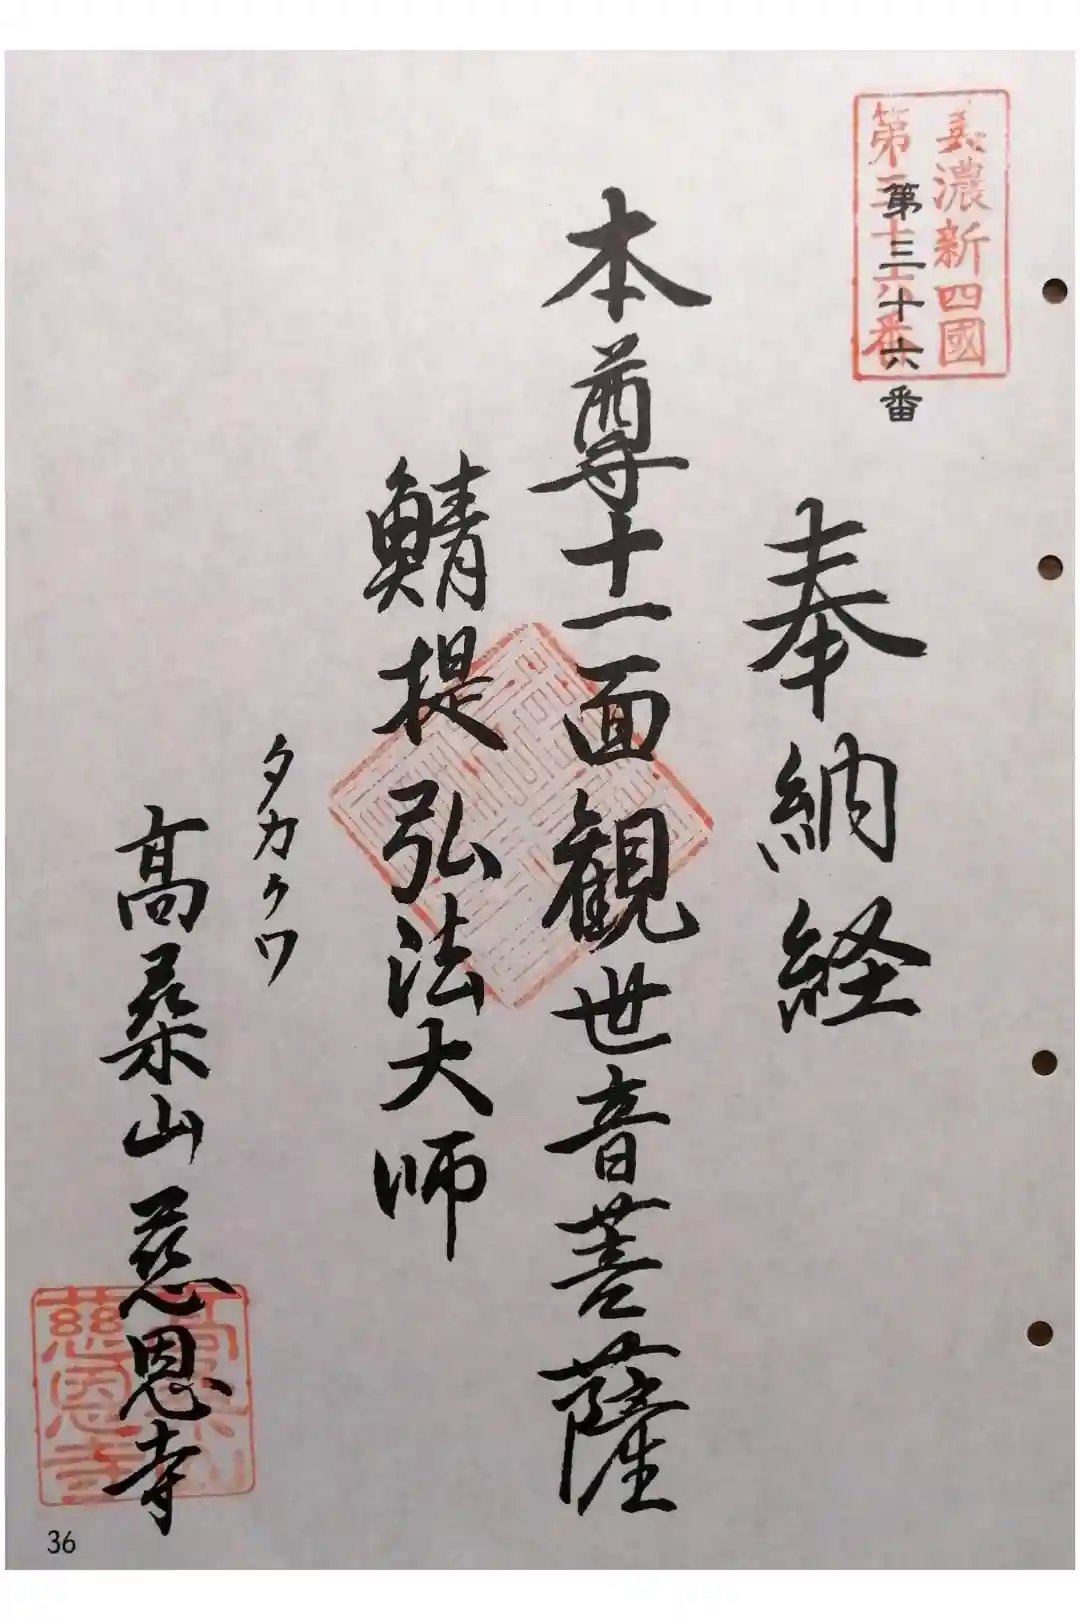 美濃新四國
第三十六番
第三十六番
奉納経
本尊十一面観世音菩薩
鯖提弘法大師
タカクワ
高桑山慈恩寺
高桑山
慈恩寺
36